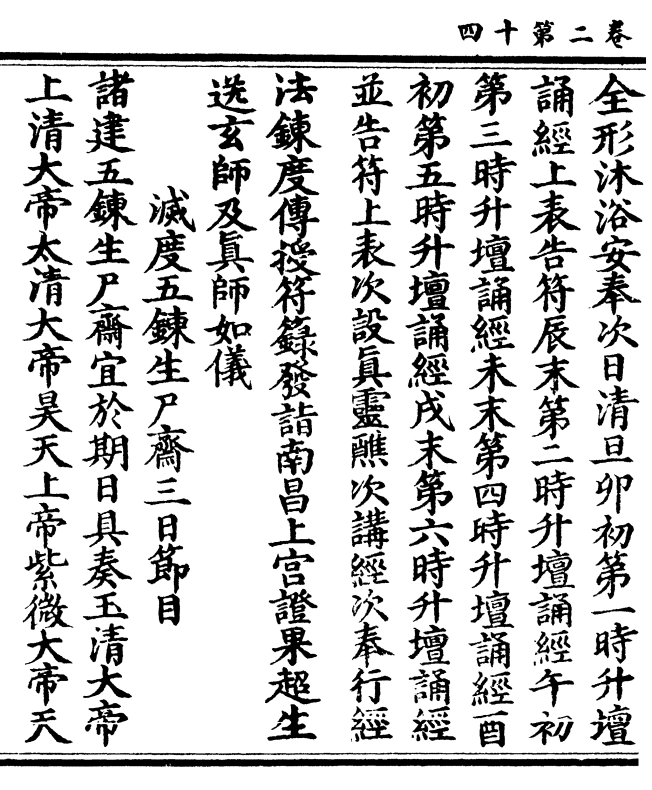 卷二第十四
全形沐浴安奉次日清旦卯初第一時升壇
誦經上表告符辰末第二時升壇誦經午初
第三時升壇誦經未末第四時升壇誦經酉
初第五時升壇誦經戌末第六時升壇誦經
並告符上表次設眞靈醮次講經次奉行經
法鍊度傳授符籙發詣南昌上宮證果超生
送玄師及眞師如儀
滅度五鍊生尸齋三日節目
諸建五鍊生尸齋宜於期日具奏玉清大帝
上清大帝太清大帝昊天上帝紫微大帝天